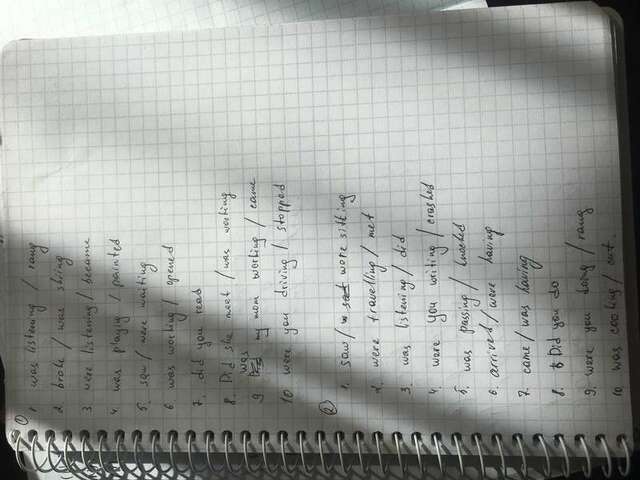 ①
1. was listening / rang
2. broke / was skiing
3. were listening / became
4. was playing / painted
5. saw / were waiting
6. was working / opened
7. did you read
8. Did she meet / was working
9. was my mom working / came
10 were you driving / stopped
②
1. saw / were sitting
2. were travelling / met
3. was listening / did
4. were you writing / crashed
5. was passing /
6. arrived / were having
7. came / was having
8. Did you do
9. were you doing / rang
10 was cooking / cut